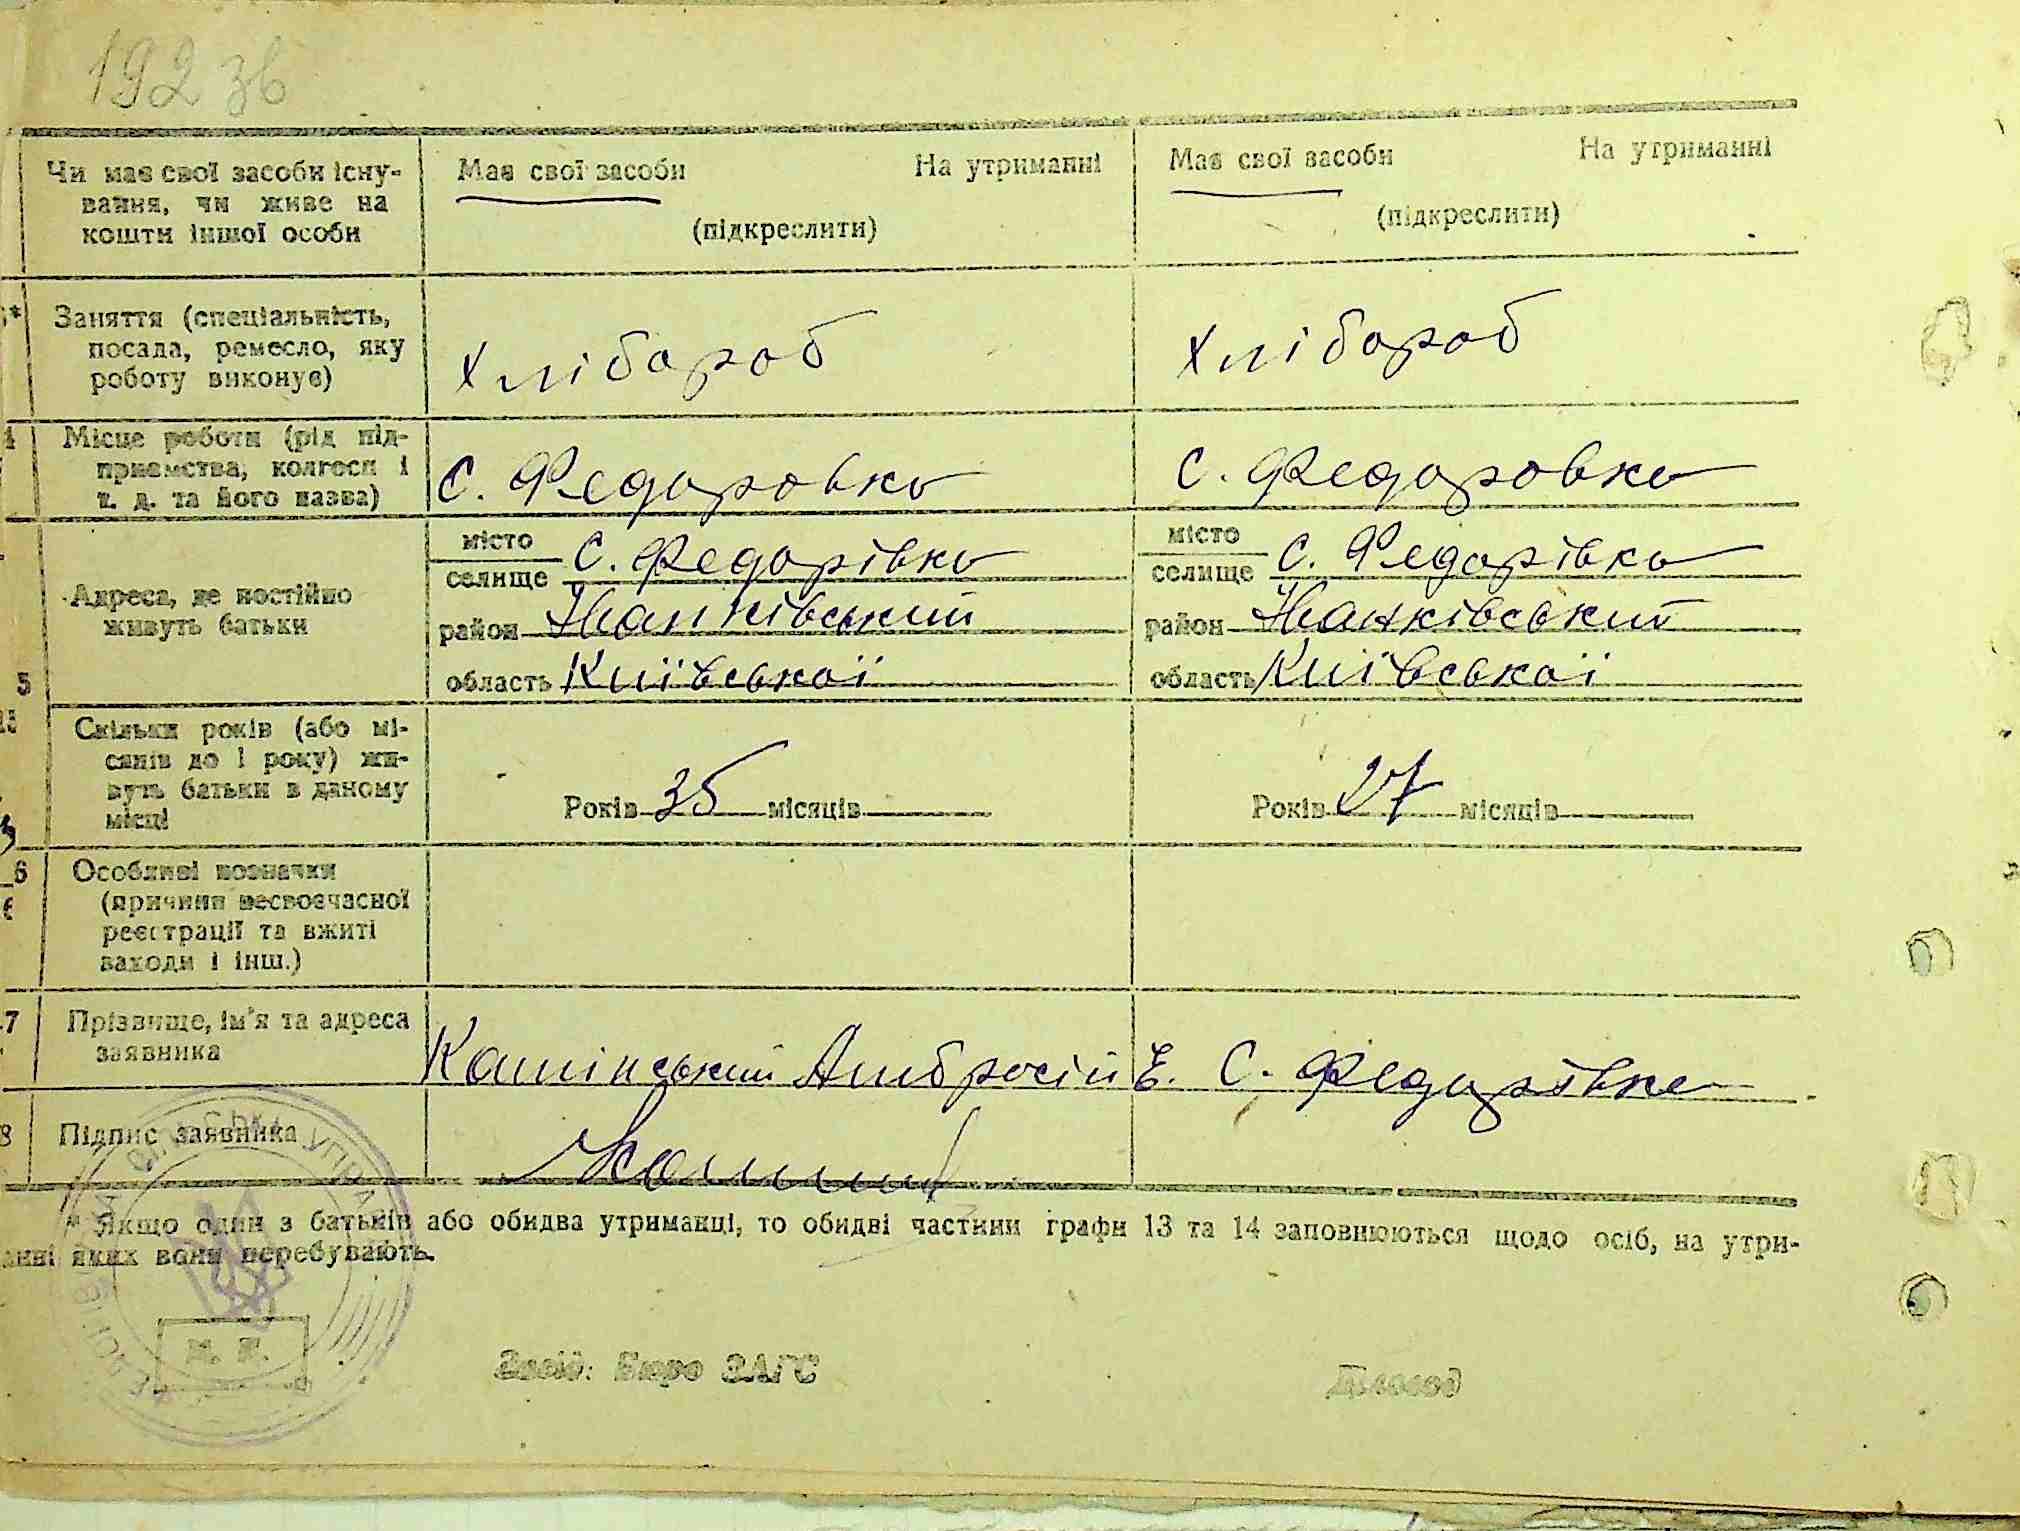 192 зв
Чи має свої засоби існу-
вання, чи живе на
кошти іншої особи
Має свої засоби На утриманні
(підкреслити)
Має свої засоби На утриманні
(підкреслити)
Заняття (спеціальність,
посада, ремесло, яку
роботу виконує)
Хлібороб
Хлібороб
Місце роботи (рід під-
приємства, колгосп і
т. д. та його назва)
С. Федоровка
С. Федоровка
Адреса, де постійно
живуть батьки
місто
селище С. Федорівка
район Іванківський
область Київської
місто
селище С. Федорівка
район Іванківський
область Київської
5
Скільки років (або мі-
сяців до 1 року) жи-
вуть батьки в даному
місці
Років 35 місяців
Років 27 місяців
6
Особливі позначки
(причини несвоєчасної
реєстрації та вжиті
заходи і інш.)
7
Прізвище, ім'я та адреса
заявника
Камінський Амбросій Є. С. Федорівка
8
Підпис заявника
* Якщо один з батьків або обидва утриманці, то обидві частини графи 13 та 14 заповнюються щодо осіб, на утри-
анні яких вони перебувають.
М. П.
Завід. Бюро ЗАГС
Діловод